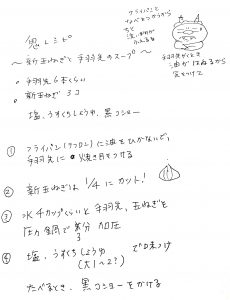 怠レシピ
〜新玉ねぎと手羽先のスープ〜
・手羽先 6本くらい
・新玉ねぎ 3コ
塩、うすくちしょうゆ、黒コショー
① フライパン(テフロン)に油をひかないで、
手羽先に焼き目をつける
② 新玉ねぎは1/4にカット!
③ 水4カップくらいと手羽先、玉ねぎを
圧力鍋で3分加圧
④ 塩、うすくちしょうゆ(大1〜2?)で味つけ
たべるとき、黒コショーをかける
フライパンと
なべをつかうから
ちと
洗い物が
ふえるネ
手羽先やくとき
油がはねるから
気をつけて